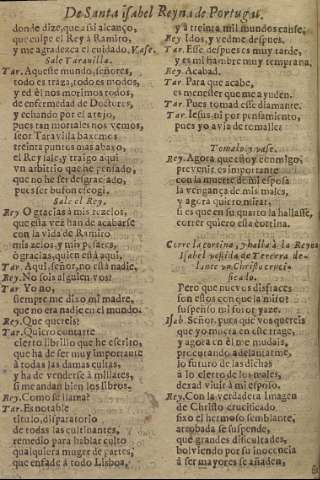 De Santa Isabel Reyna de Portugal.
donde dize, que a si alcanço,
que culpe el Rey a Ramiro,
y me agradezca el cuidado. Vase.
Sale Taravilla.
Tar. Aqueste mundo, señores,
todo es traza, todo es modos,
y ed èl nos morimos todos,
de enfermedad de Doctores,
y echando por el atajo,
pues tan mortales nos vemos,
seor Taravilla baxemos
treinta puntos mas abaxo,
el Rey sale, y traigo aqui
vn arbitrio que he pensado,
que no he ser desgraciado,
pues ser bufon escogi.
Sale el Rey.
Rey. O gracias à mis rezelos,
que esta vez han de acabarse
con la vida de Ramiro
mis zelos y mis pesares,
ò gracias, quien está aqui,
Tar. Aqui señor, no està nadie.
Rey. No sois alguien vos?
Tar. Yo no,
siempre me dixo mi madre,
que no era nadie en el mundo.
Rey. Que quereis?
Tar. Quiero contarte
cierto librillo que he escrito,
que ha de ser muy importante
à todas las damas cultas,
y ha de venderse à millares,
si me andan bien los libros.
Rey. Como se llama?
Tar. Es notable
titulo, disparatorio
de todas las cultinantes,
remedio para hablar culto
qualquiera muger de partes,
que enfade à todo Lisboa,
y à treinta mil mundos canse,
Rey. Idos, y vedme despues.
Tar. Esse despues es muy tarde,
y es mi hambre muy temprana.
Rey. Acabad.
Tar. Para que acabe,
es menester que me ayuden.
Rey. Pues tomad esse diamante.
Tar. Iesus, ni por pensamiento,
pues yo avia de tomalle?
Tomalo, y vase.
Rey. Agora que estoy conmigo,
prevenir es importante
con la muerte de mi esposa
la vengança de mis males,
y agora quiero mirar,
si es que en su quarto la hallasse,
correr quiero esta cortina.
Corre la cortina, y halla à la Reyna
Isabel vestida de Tercera de-
lante vn Christo cruci-
ficado.
Pero que nuevos disfraces
son estos con que la miro?
suspenso mi furor yaze.
Isab. Señor, pues que vos quereis
que yo muera en este trage,
y agora en èl me mudais,
procurando adelantarme,
lo futuro de las dichas
à lo cierto de los males,
dexad vivir à mi esposo.
Rey. Con la verdadera Imagen
de Christo crucificado
fixo el hermoso semblante,
arrobada se suspende,
que grandes dificultades,
bolviendo por su inocencia
à ser mayores se añaden,